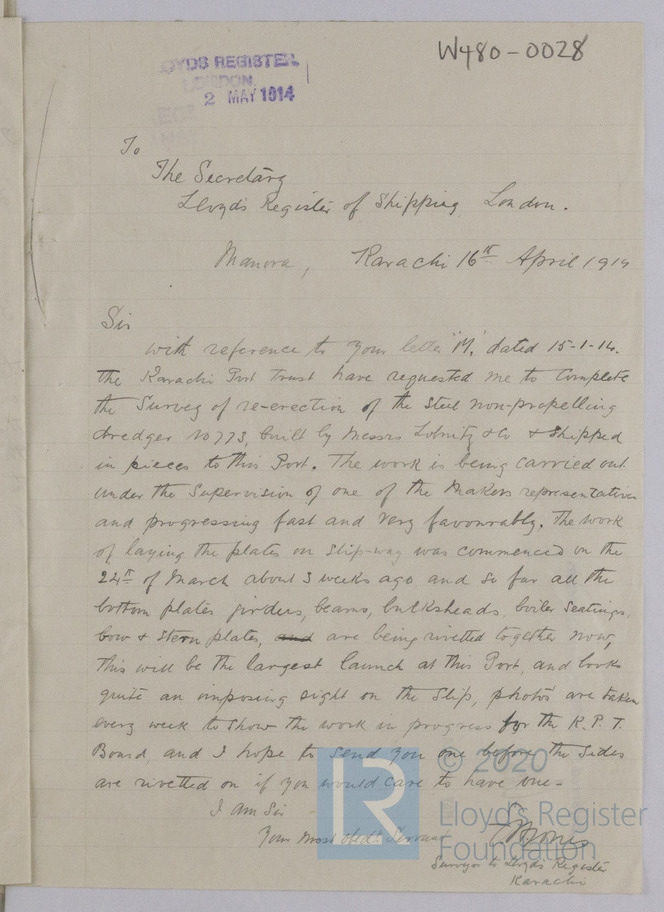 W480-0028
LOYDS REGISTER
LONDON
2 MAY 1914
To
The Secretary
Lloyds Register of Shipping London.
Manora, Karachi 16th April 1914
Sir
with reference to your letter 'M' dated 15-1-14.
the Karachi Port Trust have requested me to complete
the Survey of re-erection of the steel non-propelling
dredger No 773, built by Messrs Lobnitz & Co & Shipped
in pieces to this Port. The work is being carried out
under the Supervision of one of the Makers representatives
and progressing fast and very favourably. The work
of laying the plates on slip-way was commenced on the
24th of March about 3 weeks ago and so far all the
bottom plates girders, beams, bulksheads, boiler seatings,
bow & stern plates, and are being rivetted together now,
this will be the largest launch at this Port, and looks
quite an imposing sight on the Slip, photos are taken
every week to show the work in progress for the K. P. T.
Board, and I hope to send you one before the sides
are rivetted on if you would care to have one-
I am Sir
Your most obedt Servant
Surveyor to Lloyds Register
Karachi
© 2020
Lloyd's Register
Foundation